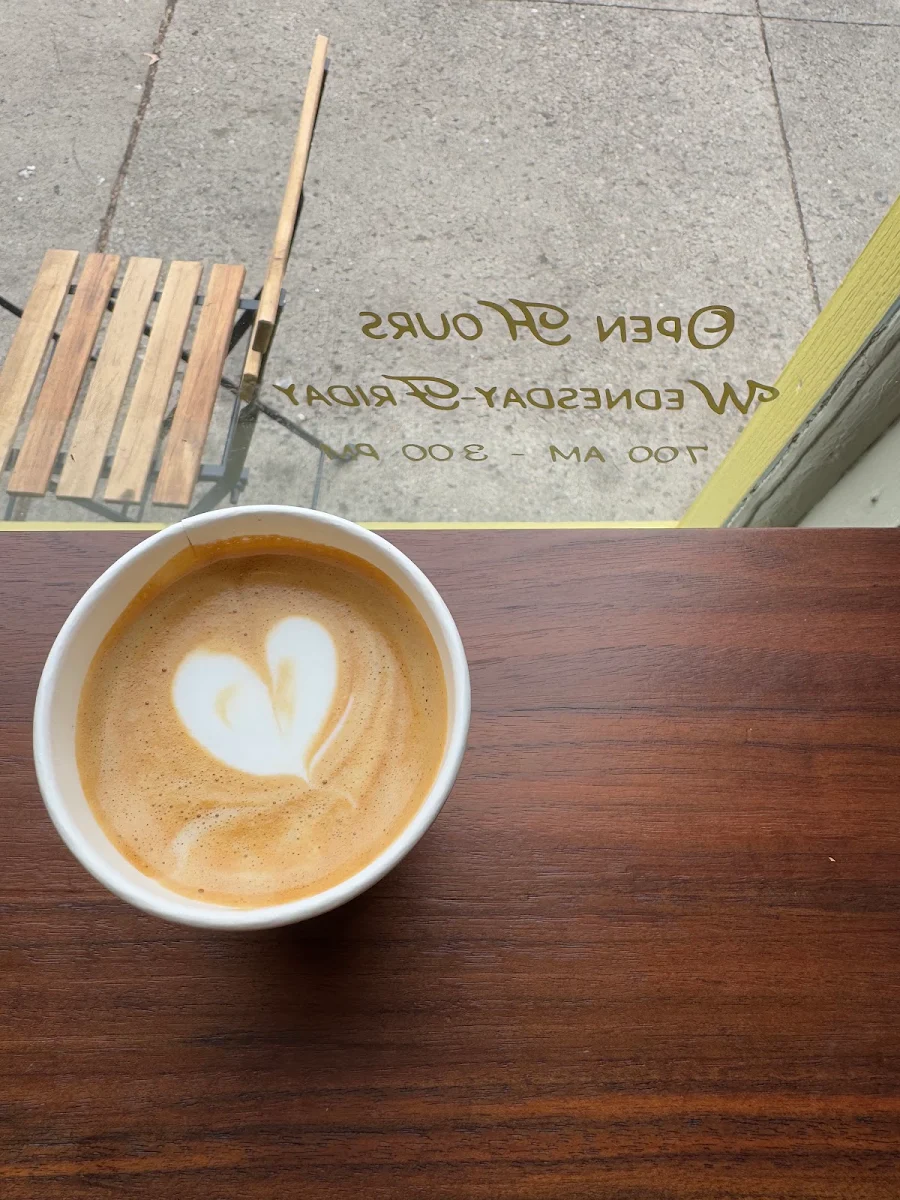 Open Hours
Wednesday-Friday
7:00 AM - 3:00 PM